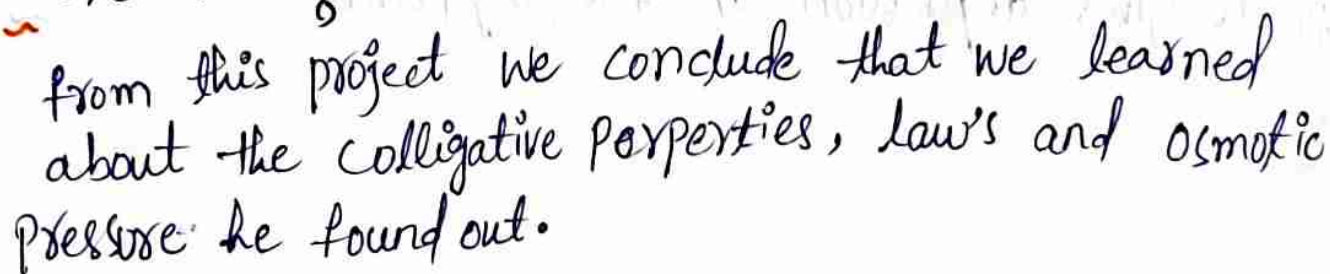 from this project we conclude that we learned
about the colligative porperties, law's and osmotic
pressure he found out.